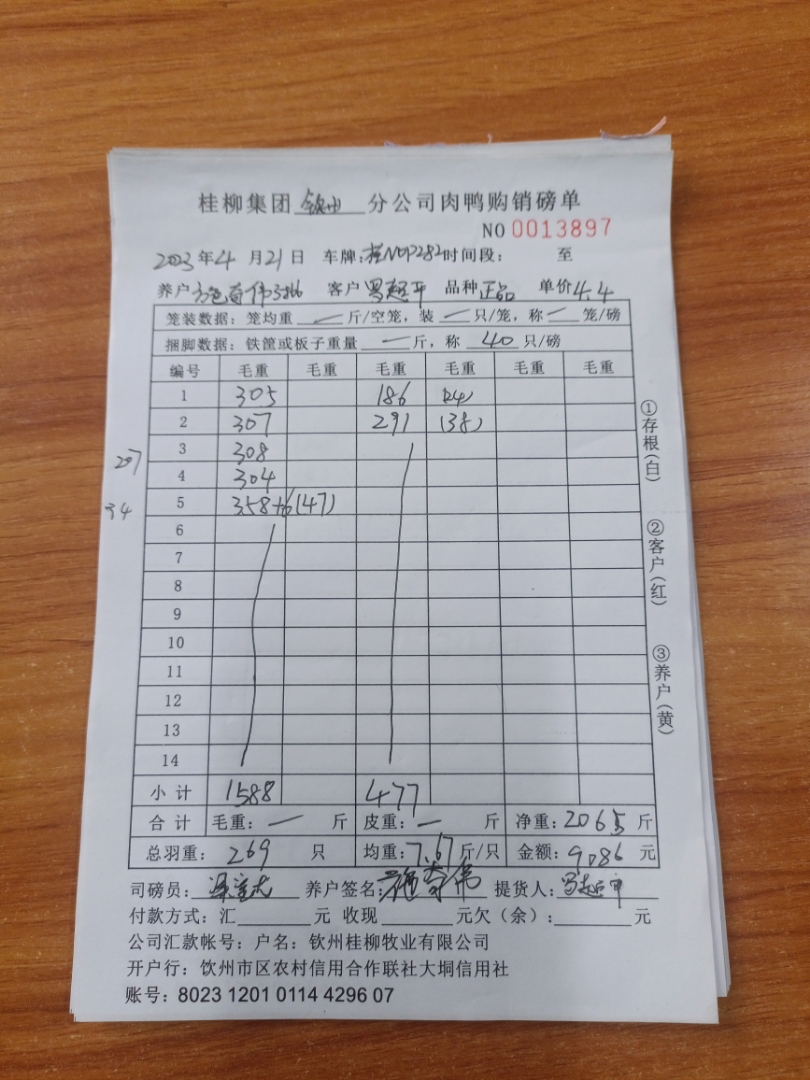 桂柳集团 钦州 分公司肉鸭购销磅单
NO 0013897
2023年4月21日 车牌:桂N0P282时间段: 至
养户 奇伟 客户 罗超平 品种 正品 单价 4.4
笼装数据:笼均重 — 斤/空笼,装 — 只/笼,称 — 笼/磅
捆脚数据:铁筐或板子重量 — 斤,称 40 只/磅
编号 毛重 毛重 毛重 毛重 毛重 毛重
1 305 186 (24)
2 307 291 (38)
3 308
4 304
5 358+6(47)
6
7
8
9
10
11
12
13
14
297
34
小计 1588 477
合计 毛重: — 斤 皮重: — 斤 净重:2065 斤
总羽重: 269 只 均重:7.67斤/只 金额:9086 元
司磅员: 养户签名: 奇伟 提货人:罗超平
付款方式:汇 元 收现 元欠(余): 元
公司汇款帐号:户名:钦州桂柳牧业有限公司
开户行:饮州市区农村信用合作联社大垌信用社
账号:8023 1201 0114 4296 07
①存根(白)
②客户(红)
③养户(黄)